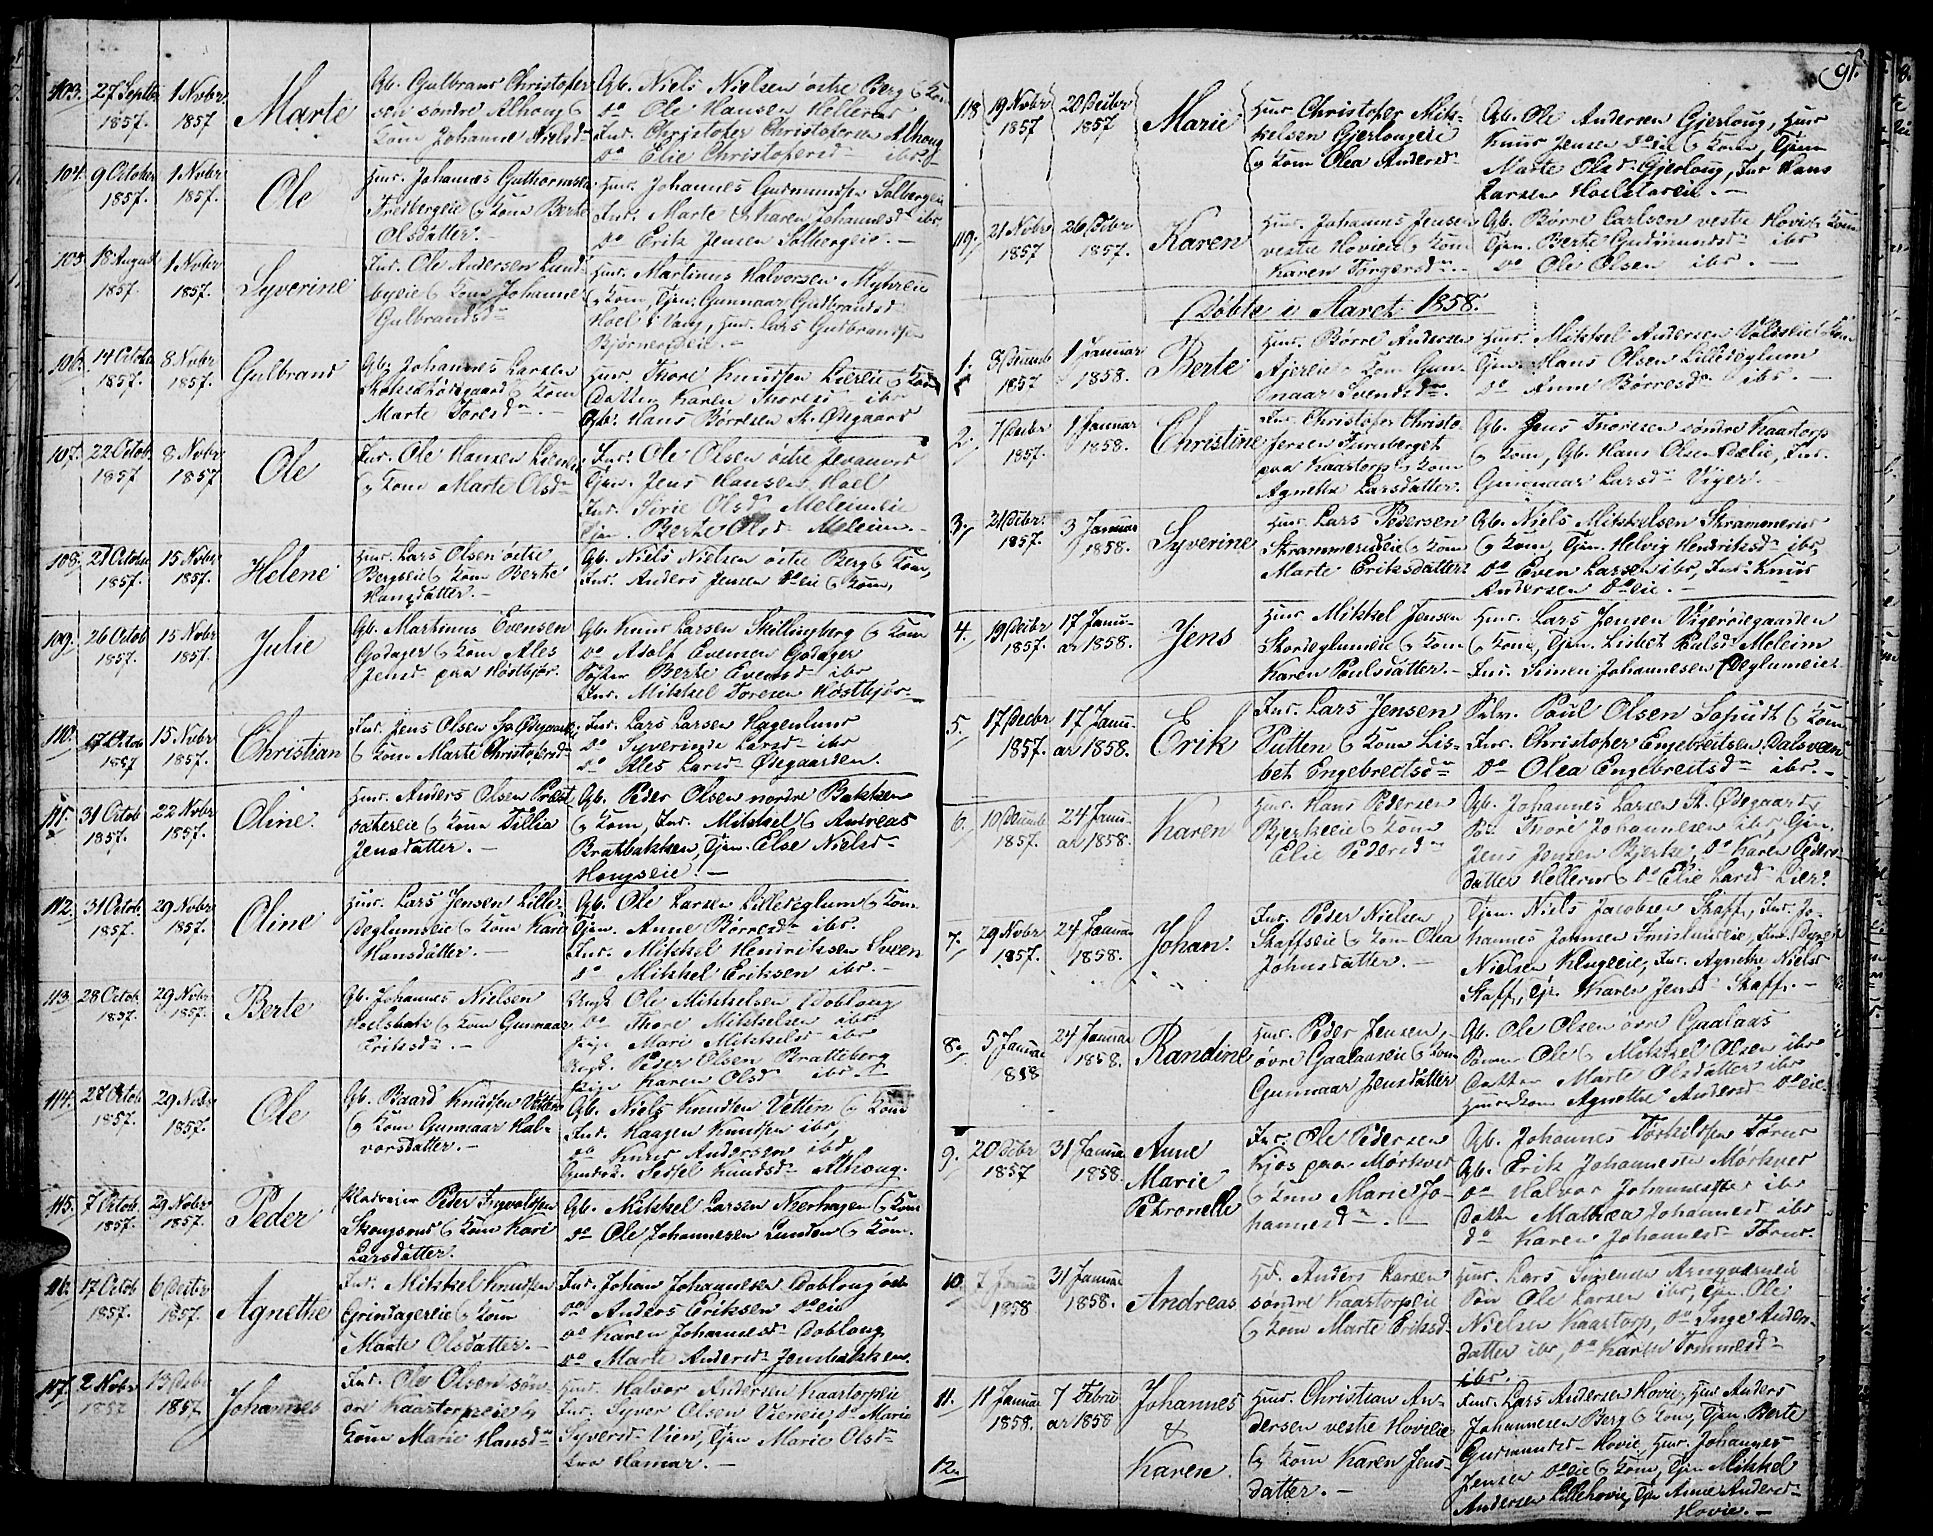 103. 27 Septbr 1857. 1 Novbr 1857 Marte
Gb. Gulbrand Christopher
sen søndre Alhoug &
Kone Johanne Nielsd-
Gb. Niels Nielsen østre Berg & Kone
Do Ole Hansen Hellerud
Ind. Christopher Christophersen Alhoug
Do Elie Christophersd- ibr.
104. 9 October 1857. 1 Novbr 1857. Ole
Huus. Johannes Guthormsen
Fredbergeie & Kone Berte
Olsdatter.
Huus. Johannes Gudmundsen Solbergeie
Ind. Marte & Karen Johannesd. ibr.
Do Erik Jensen Solbergeie. -
105 18 August 1857. 1 Novbr 1857. Syverine
Ind. Ole Andersen Lund-
byeie & Kone Johanne
Gulbrandsd-
Huus. Martinus Halvorsen Myhreie
& Kone, Tjen. Gunnaar Gudbrandsd-
Hoel i Vang, Huus. Lars Gudbrandsen
Bjørnerudeie. -
106. 14 October 1857. 8 Novbr 1857. Gulbrand
Gb. Johannes Larsen
& Kone
Marte Toresd-. -
Huus. Thore Knudsen Liereie & Kone
Datter Karen Thoresd- ibr
Gb. Hans Børresen St. Ødegaard
107. 22 Octob. 1857 8 Novbr 1857 Ole
Ind. Ole Hansen
& Kone Marte Olsd-
Ind. Ole Olsen østre Jevanord
Tjen. Jens Hansen Hoel
Ind. Sirie Olsd. Meleimeie
Tjen. Berte Olsd- Meleim. -
108. 21 October 1857. 15 Novbr 1857. Helene
Huus. Lars Olsen østre
Bergseie & Kone Berthe
Hansdatter. -
Gb. Niels Nielsen østre Berg & Kone,
Ind. Anders Jensen Do eie & Kone,
109. 26 Octob 1857. 15 Novbr 1857. Julie
Gb. Martinus Evensen
Godager & Kone Ales
Jensd- paa Høstbjør.
Gb. Knud Larsen Skillingberg & Kone
Do Adolf Evensen Godager
Søster Berte Evensd- ibr
Ind. Mikkel Toresen Høstbjør-
110. 17 Octob 1857 15 Novbr 1857. Christian
Ind. Jens Olsen St. Ødegaard
& Kone Marte Christophersd-
Ind. Lars Larsen Hagenlund
Do Syverine Larsd- ibr
Do Ales Larsd- Ødegaarden.
111. 31 Octob 1857. 22 Novbr 1857. Oline.
Huus. Anders Olsen Præst
sætereie & Kone Tillia
Jensdatter. -
Gb. Peder Olsen nordre Bakken
& Kone, Ind. Mikkel & Andreas
Bratbakken, Tjen. Else Nielsd-
Hougseie. -
112. 31 Octob. 1857. 29 Novbr 1857. Oline
Huus. Lars Jensen Lille-
Deglumseie & Kone Kari
Hansdatter. -
Gb. Ole Larsen Lilledeglum & Kone
Tjen. Anne Børresd- ibr.
Ind. Mikkel Hendriksen Sveen
Do Mikkel Eriksen ibr. -
113. 28 Octob. 1857. 29 Novbr 1857. Berte
Gb. Johannes Nielsen
Hoelsbak & Kone Gunnaar
Eriksd-. -
Ungk. Ole Mikkelsen Doblaug
Do Thore Mikkelsen ibr
Pige Mari Mikkelsd ibr
Ungk. Peder Olsen Bratteberg
Pige Karen Olsd- ibr
114. 27 Octob 1857. 29 Novbr 1857. Ole
Gb. Baard Knudsen Vetten
& Kone Gunnaar Hal-
vorsdatter. -
Gb. Niels Knudsen Vetten & Kone
Ind. Haagen Knudsen ibr,
Do Knud Andersen ibr,
Sissel Knudsd- Alhoug.
115. 7 Octob. 1857. 29 Novbr 1857. Peder
Peder Ingvaldsen
Skougsrud & Kone Kari
Larsdatter.
Gb. Mikkel Larsen Nerhagen & Kone
Do Ole Johannesen Lunden & Kone.
116. 17 Octob 1857. 6 Decbr 1857. Agnethe
Ind. Mikkel Knudsen
Grindagereie & Kone
Marte Olsdatter. -
Ind. Johan Johannesen Doblaug østr
Do Anders Eriksen Do eie
Do Karen Johannesd- Doblaug
Do Marte Andersd- Jensbakken.
117. 2 Novbr 1857 13 Decbr 1857 Johannes
Ind. Ole Olsen søn-
dre Kaastorpeie &
Kone Marie Hansd-
Huus. Halvor Andersen Kaastorpeie
Ind. Syver Olsen Vieneie, Do Marie
Syversd- Vien, Tjen Marie Olsd-
Hamar. -
91.
118 19 Novbr 1857 20 Decbr 1857 Marie
Huus. Christopher Mik-
kelsen Gjerlougeie
& Kone Olea Andersd-
Gb. Ole Andersen Gjerloug, Huus
Knud Jensen Do eie & Kone, Tjen
Marte Olsd. Gjerloug, Ind Hans
Larsen Hoelstadeie. -
119. 21 Novbr 1857 26 Decbr 1857. Karen
Huus. Johannes Jensen
vestre Hovieie & Kone
Karen Torgersd-. -
Gb. Børre Carlsen vestre Hovie & Kone
Tjen. Berte Gudmundsd- ibr
Do Ole Olsen ibr. -
Døbte i Aaret 1858.
1. 3 Decemb 1857 1 Januar 1858. Berte
Huus. Børre Andersen
Ajereie & Kone Gun-
naar Svendsd-.
Huus. Mikkel Andersen Voldseie & Kone
Tjen. Hans Olsen Lilledeglum
Do Anne Børresd- ibr. -
2. 7 Decbr 1857. 1 Januar 1858. Christine
Ind. Christopher Christo-
fersen Furuberget
paa Kaastorp & Kone
Agnethe Larsdatter.
Gb. Jens Thoresen søndre Kaastorp
& Kone, Gb. Hans Olsen Dælie, Ind.
Gunnaar Larsd- Viger. -
3. 21 Decbr. 1857. 3 Januar 1858. Syverine
Huus. Lars Pedersen
Skrammerudeie & Kone
Marte Eriksdatter.
Gb. Niels Mikkelsen Skrammerud
& Kone, Tjen. Helvig Hendriksd- ibr,
Do Even Larsen ibr, Ind. Knud
Andersen Do eie. -
4. 19 Decbr 1857. 17 Janu- ar 1858. Jens
Huus. Mikkel Jensen
Stordeglumeie & Kone
Karen Poulsdatter. -
Huus. Lars Jensen Vigerøiegaarden
& Kone, Tjen. Lisbet Paulsd- Meleim
Ind. Simen Johannesen Deglumeie.
5. 17 Decbr 1857. 17 Janu- ar 1858. Erik
Ind. Lars Jensen
Putten & Kone Lis-
bet Engebretsd-
Selv. Paul Olsen Sopudt & Kone
Ind. Christopher Engebretsen Dalsveen
Do Olea Engebretsd- ibr. -
6. 10 Decemb 1857. 24 Janu- ar 1858. Karen
Huus. Hans Pedersen
Bjerkeeie & Kone
Elie Pedersd-
Gb. Johannes Larsen St. Ødegaard,
Thore Johannesen ibr, Tjen.
Jens Jensen Bjerke, Do Karen Peders-
datter Hellerud & Do Elie Larsd- Lier.
7. 29 Novbr 1857. 24 Januar 1858. Johan.
Ind. Peder Nielsen
Skaftseie & Kone Olea
Johnsdatter. -
Tjen. Niels Jacobsen Skaft, Ind. Jo-
hannes Johnsen Ind.
Nielsen Klugeeie, Ind. Agnethe Nielsd
Skaft, Tjen Karen Jensd- Skaft. -
8. 5 Januar 858 24 Januar 1858. Randine
Huus. Peder Jensen,
øvre Gaalaaseie & Kone
Gunnaar Jensdatter
Gb. Ole Olsen øvre Gaalaas
Sønner Ole & Mikkel Olsen ibr
Datter Marte Olsdatter ibr
Huuskone Agnethe Andersd- Do eie
9. 20 Decbr 1857 31 Januar 1858. Anne
Marie
Petronelle
Ind. Ole Pedersen
Kjos paa Mørkved
& Kone Marie Jo-
hannesd-. -
Gb. Johannes Torkildsen Torud
Gb. Erik Johannesen Mørkved
Do Halvor Johannesen ibr
Datter Mathea Johannesd ibr
Do Karen Johannesd- Torud.
10. 7 Januar 1858 31 Januar 1858. Andreas
Hd. Anders Larsen
søndre Kaastorpeie
& Kone Marte Eriksd-
Huus. Lars Simensen Arnqværneie
Søn Ole Larsen ibr, Tjen. Ole
Nielsen Kaastorp, Do Inge Anders-
datter ibr, Do Karen Tommesd-
ibr.
11. 11 Januar 1858. 7 Febru- ar 1858 Johannes
&
12. Karen.
Huus. Christian An-
dersen vestre Hovieie
& Kone Karen Jens-
datter. -
Ind. Lars Andersen Hovie, Huus Anders
Johannesen Berg & Kone, Tjen. Berte
Gudmundsd- Hovie, Huus. Johannes
Jensen Do eie & Kone, Tjen Mikkel
Andersen Lillehovie, Tjen Anne Andersd-
Hovie. -